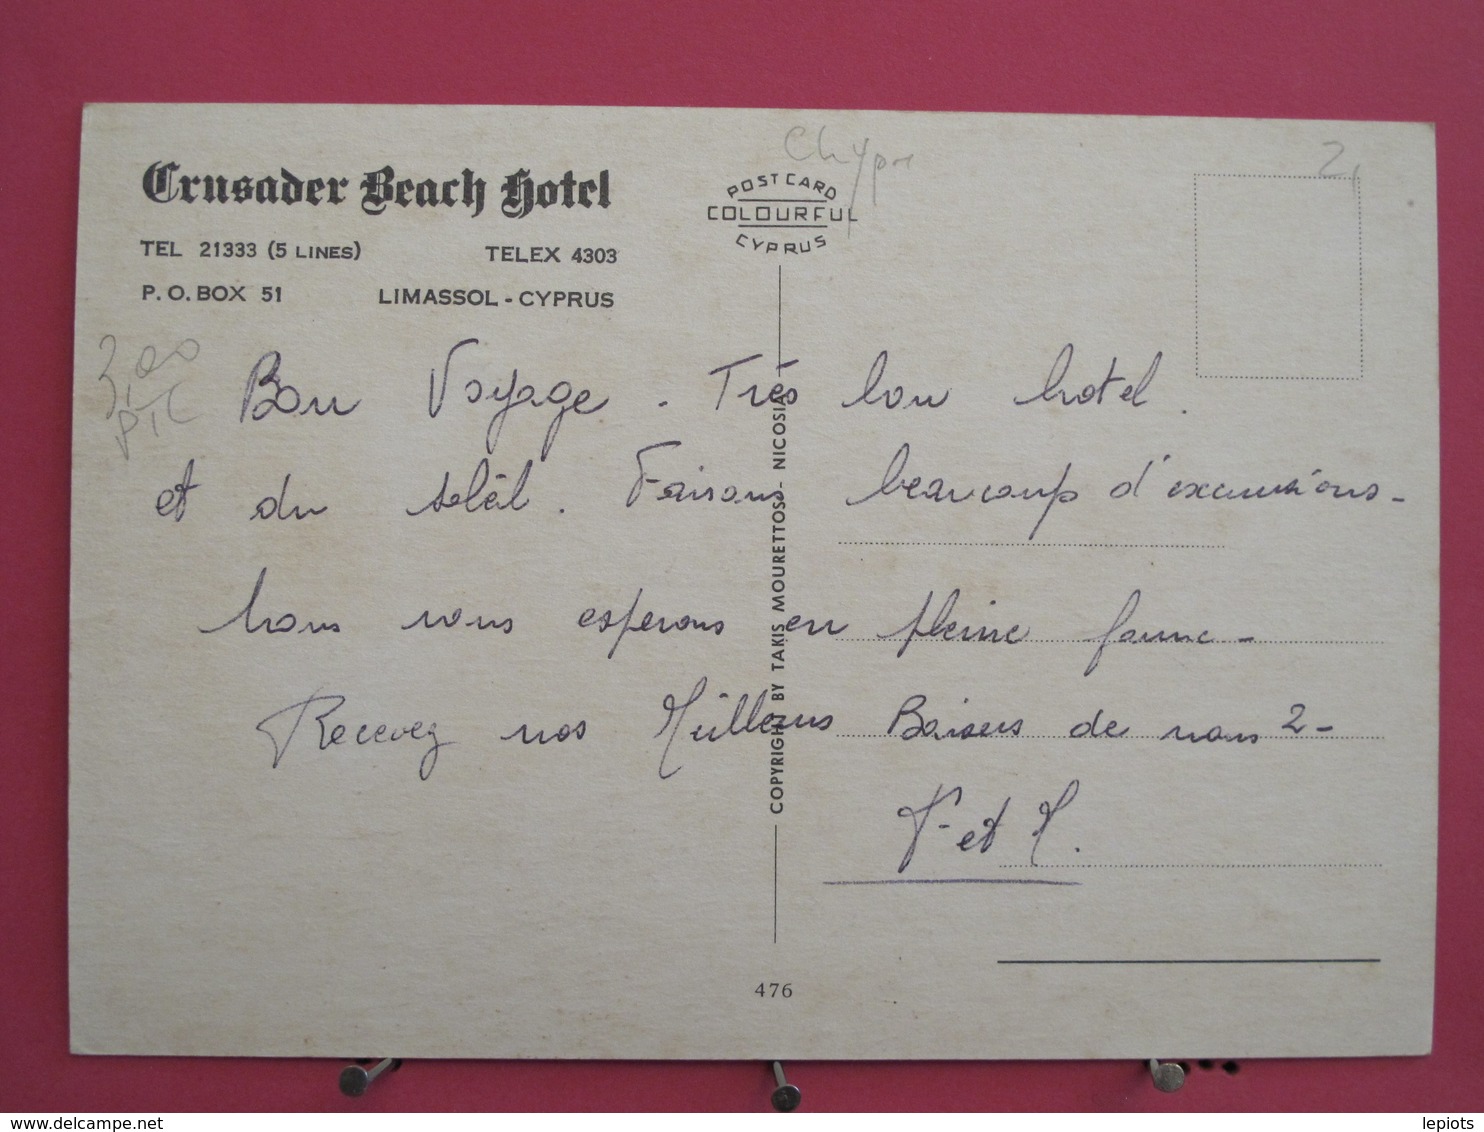 Chypre
2,
Crusader Beach Hotel
TEL 21333 (5 LINES) TELEX 4303
P.O. BOX 51 LIMASSOL - CYPRUS
POST CARD
COLOURFUL
CYPRUS
3,00
Bon Voyage. Très bon hotel.
et du soleil. Faisons beaucoup d'excursions-
Nous vous esperons en pleine forme-
Recevez nos Meilleurs Baisers de nous 2-
F et M.
COPYRIGHT BY TAKIS MOURETTOS - NICOSIA
476
delcampe.net
lepiots